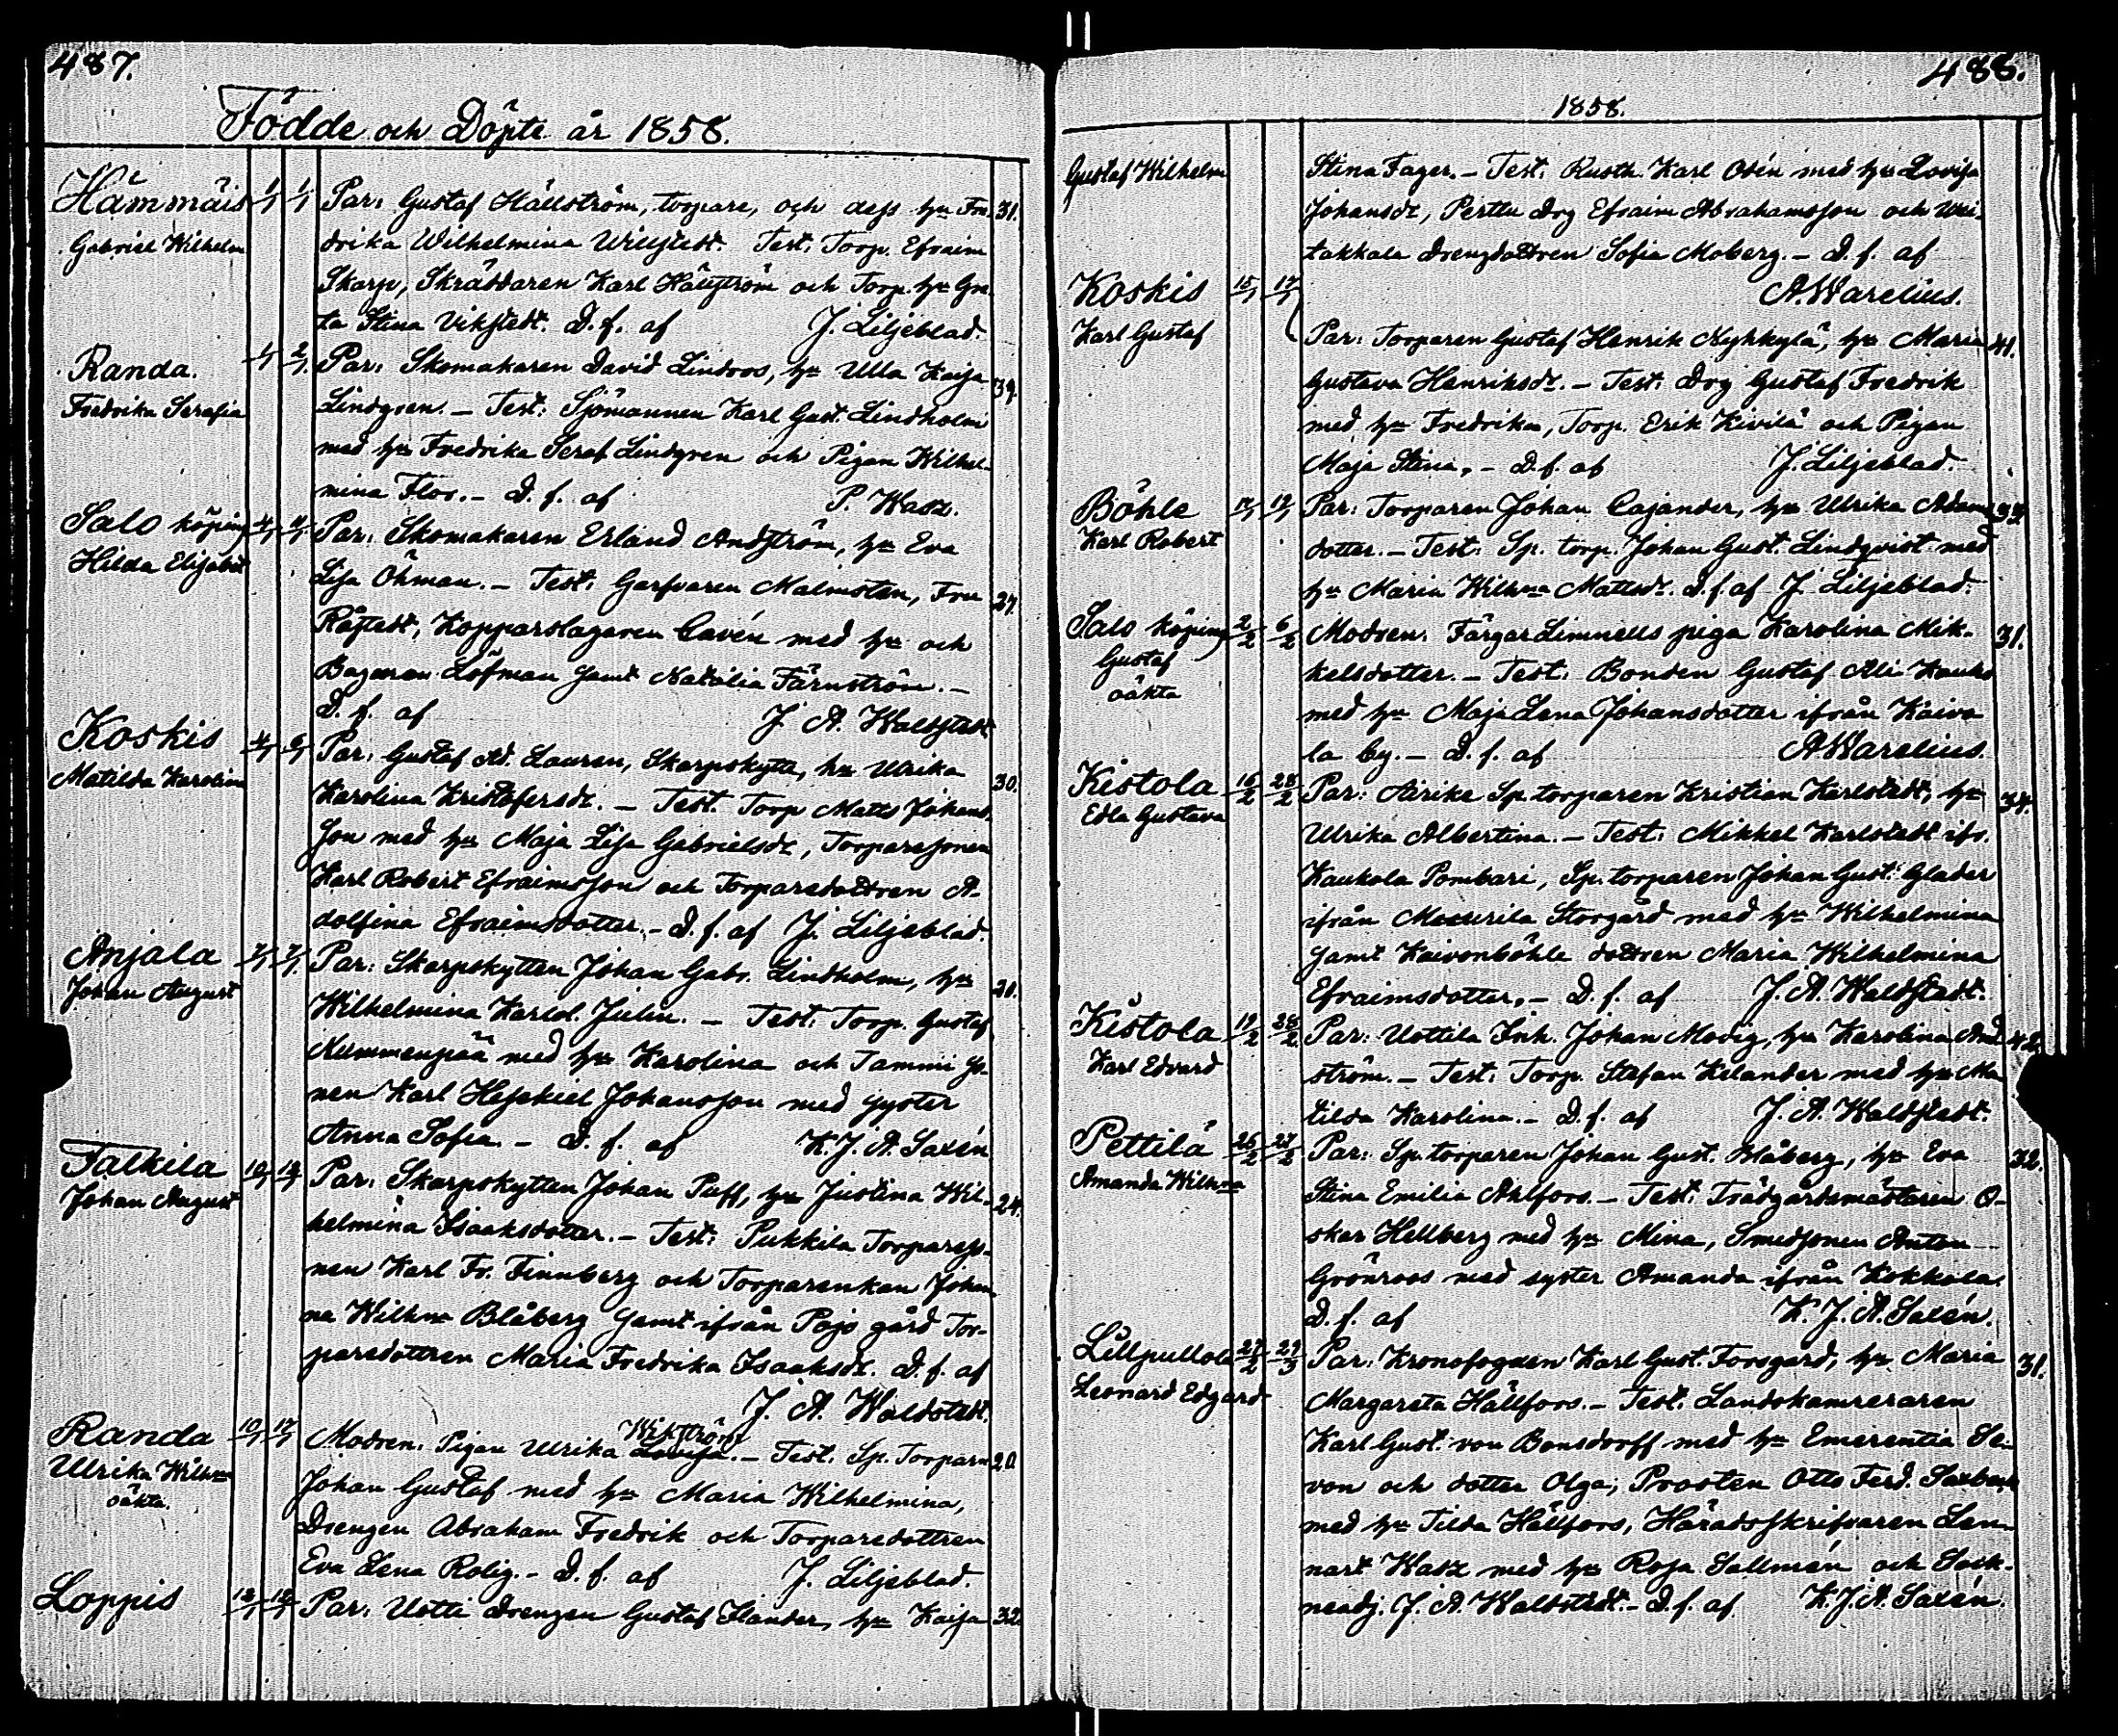 487.
Födde och Döpte år 1858.
Hämmäis 1/1 1/1 Par: Gustaf Hällström, torpare, och dess hu Fre- 31.
Gabriel Wilhelm drika Wilhelmina Willstedt. Test: Torp. Efraim
Skarp, Skräddaren Karl Hällström och Torp. hu Gre-
ta Stina Vikstedt. D. f. af J. Liljeblad.
Randa. 1/1 2/1 Par: Skomakaren David Lindroos, hu Ulla Kaisa 39.
Fredrika Serafia Lindgren. – Test: Sjömannen Karl Gust. Lindholm
med hu Fredrika Seraf Lindgren och Pigan Wilhel-
mina Flor. – D. f. af P. Wasz.
Salo köping 4/1 4/1 Par: Skomakaren Erland Andström, hu Eva
Hilda Elisabet Lisa Öhman. – Test: Garfvaren Malmsten, Fru 27.
Råstedt, Kopparslagaren Cavén med hu och
Löfman samt Natalia Färnström. –
D. f. af J. A. Waldstedt
Koskis 4/1 6/1 Par: Gustaf Ad. Lauren, Skarpskytt, hu Ulrika 30.
Matilda Karolina Karolina Kristofersdr. – Test. Torp Matts Johans-
son med hu Maja Lisa Gabrielsdr, Torparesonen
Karl Robert Efraimsson och Torparedottren A-
dolfina Efraimsdotter. – D. f. af J. Liljeblad.
Anjala 7/1 7/1 Par: Skarpskytten Johan Gabr. Lindholm, hu 21.
Johan August Wilhelmina Karol. Julin. – Test: Torp. Gustaf
Nummenpää med hu Karolina och Tammi so-
nen Karl Hesekiel Johansson med syster
Anna Sofia. – D. f. af K. J. A. Saxén
Talkila 10/1 14/1 Par: Skarpskytten Johan Puff, hu Justina Wil- 24.
Johan August helmina Isaaksdotter. – Test: Pukkila Torpareso-
nen Karl Fr. Finnberg och Torparenkan Johan-
na Wilhna Blåberg samt ifrån Pojo gård Tor-
paredottren Maria Fredrika Isaaksdr. D. f. af
J. A. Waldstedt.
Randa 10/1 17/1 Modren: Pigan Ulrika Lovisa Wikström. – Test: Sp. Torparn 20.
Ulrika Wilhna Johan Gustaf med hu Maria Wilhelmina,
oäkta. Drengen Abraham Fredrik och Torparedottren
Eva Lena Rolig. – D. f. af J. Liljeblad.
Loppis 12/1 18/1 Par: Uotti drengen Gustaf Elander, hu Kaisa 32.
488.
1858.
Gustaf Wilhelm Stina Fager. – Test: Rusth. Karl Odén med hu Lovisa
Johansdr, Perttu Drg Efraim Abrahamsson och Uki-
takkala drengdottren Sofia Moberg. – D. f. af
A. Warelius.
Koskis 15/1 17/1
Karl Gustaf Par: Torparen Gustaf Henrik Nyhkylä, hu Maria 41.
Gustava Henriksdr. – Test: Drg Gustaf Fredrik
med hu Fredrika, Torp. Erik Kivilä och Pigan
Maja Stina. – D. f. af J. Liljeblad.
Böhle 17/1 19/1 Par: Torparen Johan Cajander, hu Ulrika Adams-
Karl Robert dotter. – Test: Sp. torp. Johan Gust. Lindqvist med
hu Maria Wilhna Mattsdr. D. f. af J. Liljeblad.
Salo köping 2/2 6/2 Modren: Färgar Limnells piga Karolina Mik- 31.
Gustaf kelsdotter. – Test: Bonden Gustaf Ali-Kauko
oäkta med hu Maja Lena Johansdotter ifrån Kaivo-
la by. – D. f. af A. Warelius.
Kistola 16/2 28/2 Par: Airike Sp. torparen Kristian Karlstedt, hu 34.
Edla Gustava Ulrika Albertina. – Test: Mikkel Karlstedt ifr.
Kaukola Pombari, Sp. torparen Johan Gust. Glader
ifrån Muurila Storgård med hu Wilhelmina
samt Kaivonböhle dottren Maria Wilhelmina
Efraimsdotter. – D. f. af J. A. Waldstedt.
Kistola 19/2 28/2 Par: Uottila Inh. Johan Modig, hu Karolina And- 42.
Karl Edvard ström. – Test: Torp. Stefan Kilander med hu Ma-
tilda Karolina. – D. f. af J. A. Waldstedt.
Pettilä 26/2 27/2 Par: Sp. torparen Johan Gust. Blåberg, hu Eva 32.
Amanda Wilhna Stina Emilia Ahlfors. – Test: Trädgårdsmästaren O-
skar Hellberg med hu Mina, Smedsonen Anton
Grönroos med syster Amanda ifrån Kokkola.
D. f. af K. J. A. Saxén.
Lillpullola 27/2 29/3 Par: Kronofogden Karl Gust. Forsgård, hu Maria 31.
Leonard Edgard Margareta Hällfors. – Test: Landskamreraren
Karl Gust. von Bonsdorff med hu Emerentia Se-
von och dotter Olga; Prosten Otto Ferd. Saxbeck
med hu Tilda Hällfors, Häradsskrifvaren Len-
nart Wasz med hu Rosa Sallmén och Sock-
neadj. J. A. Waldstedt. – D. f. af K. J. A. Saxén.